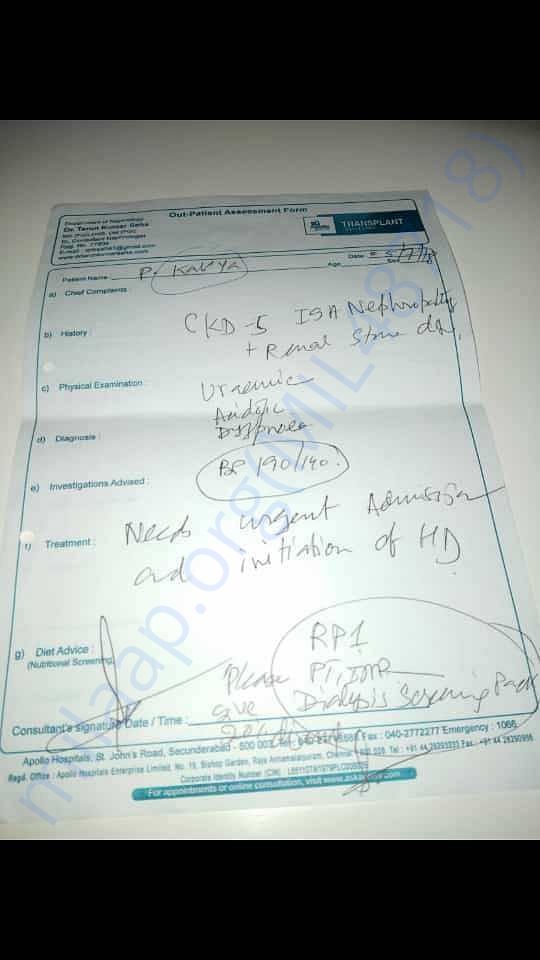 Out-Patient Assessment Form
Department of Nephrology
Dr. Tarun Kumar Saha
Sr. Consultant Nephrologist
TRANSPLANT
Patient Name : P. Kavya
Age
Date : 5/7/18
Sex
a) Chief Complaints :
b) History :
CKD-5 IgA Nephropathy
+ Renal Stone
c) Physical Examination :
Uraemic
Acidotic
Dyspnoea
d) Diagnosis :
BP 190/140.
e) Investigations Advised :
f) Treatment :
Needs urgent Admission
and initiation of HD
g) Diet Advice :
(Nutritional Screening)
RP1
Please PT, INR
give Dialysis Screening Pack
Consultant's signature Date / Time :
Apollo Hospitals, St. John's Road, Secunderabad - 500 003. Fax : 040-2772277 Emergency : 1066
Regd. Office : Apollo Hospitals Enterprise Limited, No. 19, Bishop Garden, Raja Annamalaipuram, Chennai
Corporate Identity Number (CIN) :
For appointments or online consultation, visit